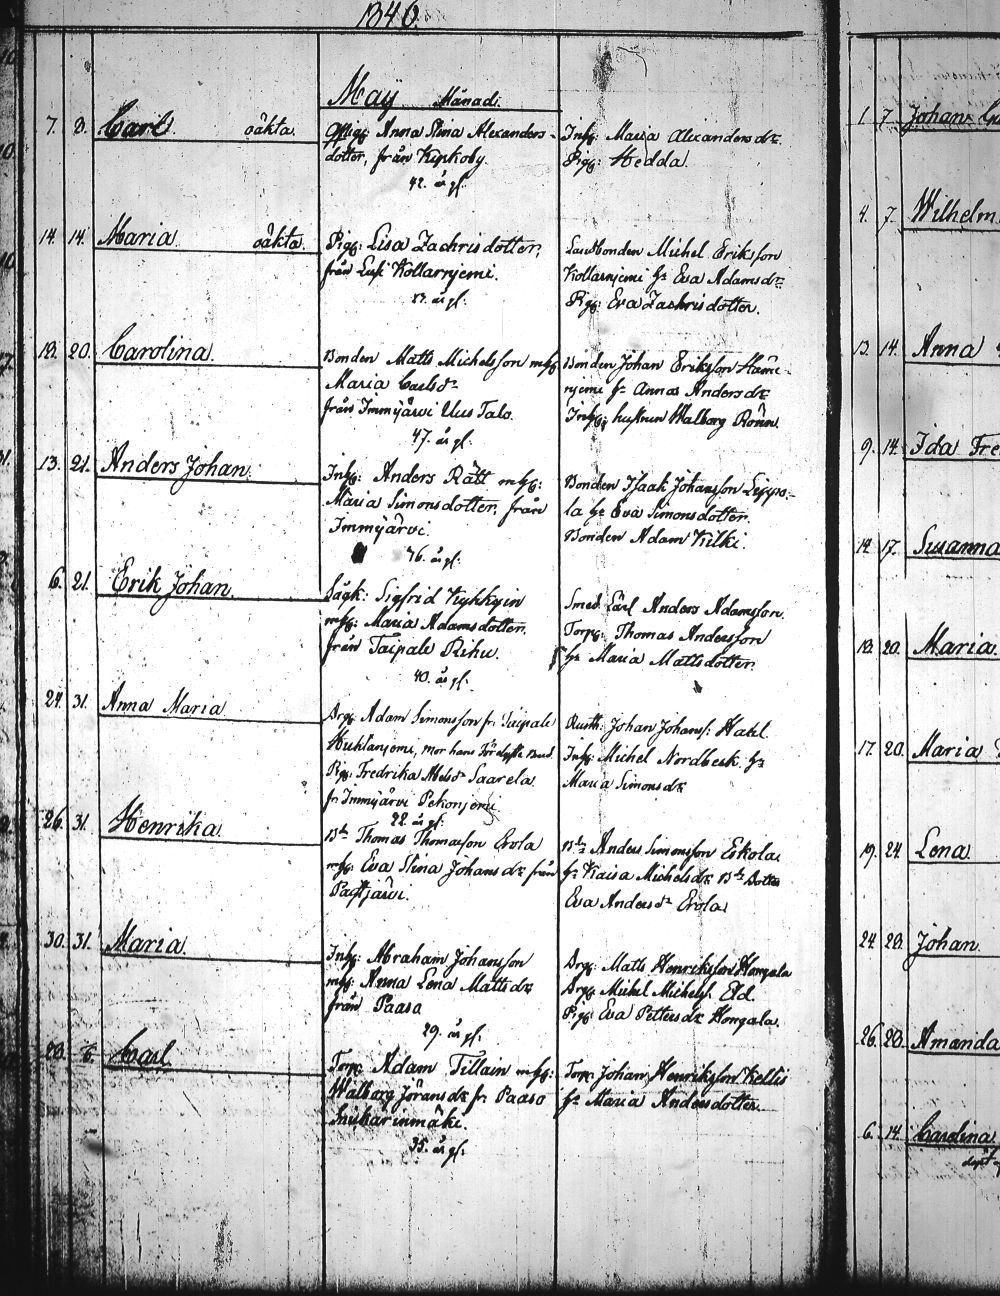 1840.
May Månad.
7. 8. Carl. oäkta. Anna Stina Alexanders-
dotter, från Kepkoby.
42. år gl.
Inh: Maria Alexandersdr.
Pig: Hedda.
14. 14. Maria. oäkta. Pig: Lisa Zachrisdotter,
från Kollarnjemi.
år gl.
Landbonden Michel Eriksson
Kollarnjemi hr Eva Adamsdr
Pig: Eva Zachrisdotter.
18. 20. Carolina. Bonden Matts Michelsson mhg
Maria Carlsdr
från Immjärvi Uus Talo.
47. år gl.
Bonden Johan Eriksson Häme-
njemi hr Anna Andersdr
Inhg: hustrun Walborg Rönn.
13. 21. Anders Johan. Inhg: Anders Rätt mhg:
Maria Simonsdotter, från
Immjärvi.
46. år gl.
Bonden Isaak Johansson Seppo-
la hr Eva Simonsdotter.
Bonden Adam Kilki.
6. 21. Erik Johan. Sigfrid Kyhkyin
mhg: Maria Adamsdotter.
från Taipale Rihu.
40. år gl.
Smed Carl Anders Adamsson.
Torp: Thomas Andersson
hr Maria Mattsdotter.
24. 31. Anna Maria. Drg: Adam Simonsson fr. Taipale
Huhtanjemi, mor hans
Pig: Fredrika Abelsdr Saarela
fr. Immjärvi Pekonjemi.
22. år gl.
Rusth: Johan Johanss: Hakl.
Inhg: Michel Nordbeck hr
Maria Simonsdr
26. 31. Henrika. Thomas Thomasson Erola
mhg: Eva Stina Johansdr från
Pastjärvi.
Anders Simonsson Eskola
hr Kaisa Michelsdr Bds Dotter
Eva Andersdr Erola
30. 31. Maria. Inhg: Abraham Johansson
mhg: Anna Lena Mattsdr
från Paaso
29. år gl.
Drg: Matts Henriksson Hongala
Drg: Michel Michelss. Eld.
Pig: Eva Pettersdr Hongala.
28. 6. Carl Torp: Adam Tillain mhg:
Walborg Jöransdr fr. Paaso
35. år gl.
Torp: Johan Henriksson Kettis
hr Maria Andersdotter.
1. 7. Johan
4. 7. Wilhelm
13. 14. Anna
9. 14. Ida Fre
14 17. Susanna
18. 20. Maria.
17. 20. Maria
19. 24 Lena.
24 28. Johan.
26. 28. Amanda
6. 14. Carolina